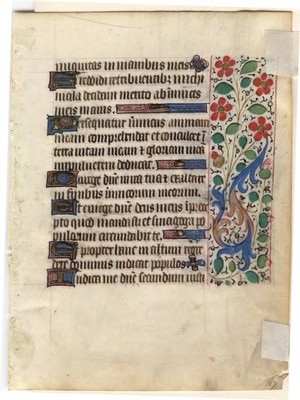 iniquitas in manibus meis
Si reddidi retribuentibus michi
mala decidam merito ab inimicis
meis inanis
Persequatur inimicus animam
meam comprehendat et conculcet ī
terra vitam meam et gloriam meā
in pulverem deducat
Exurge dn̄e in ira tua et exaltare
in finibus inimicorum meorum
Et exurge dn̄e deus meus
pto quod mandasti et sinagoga po
pulorum circundabit te
Et propter hanc in altum regre
dere dominus iudicat populos
Iudica me dn̄e secundum iusti